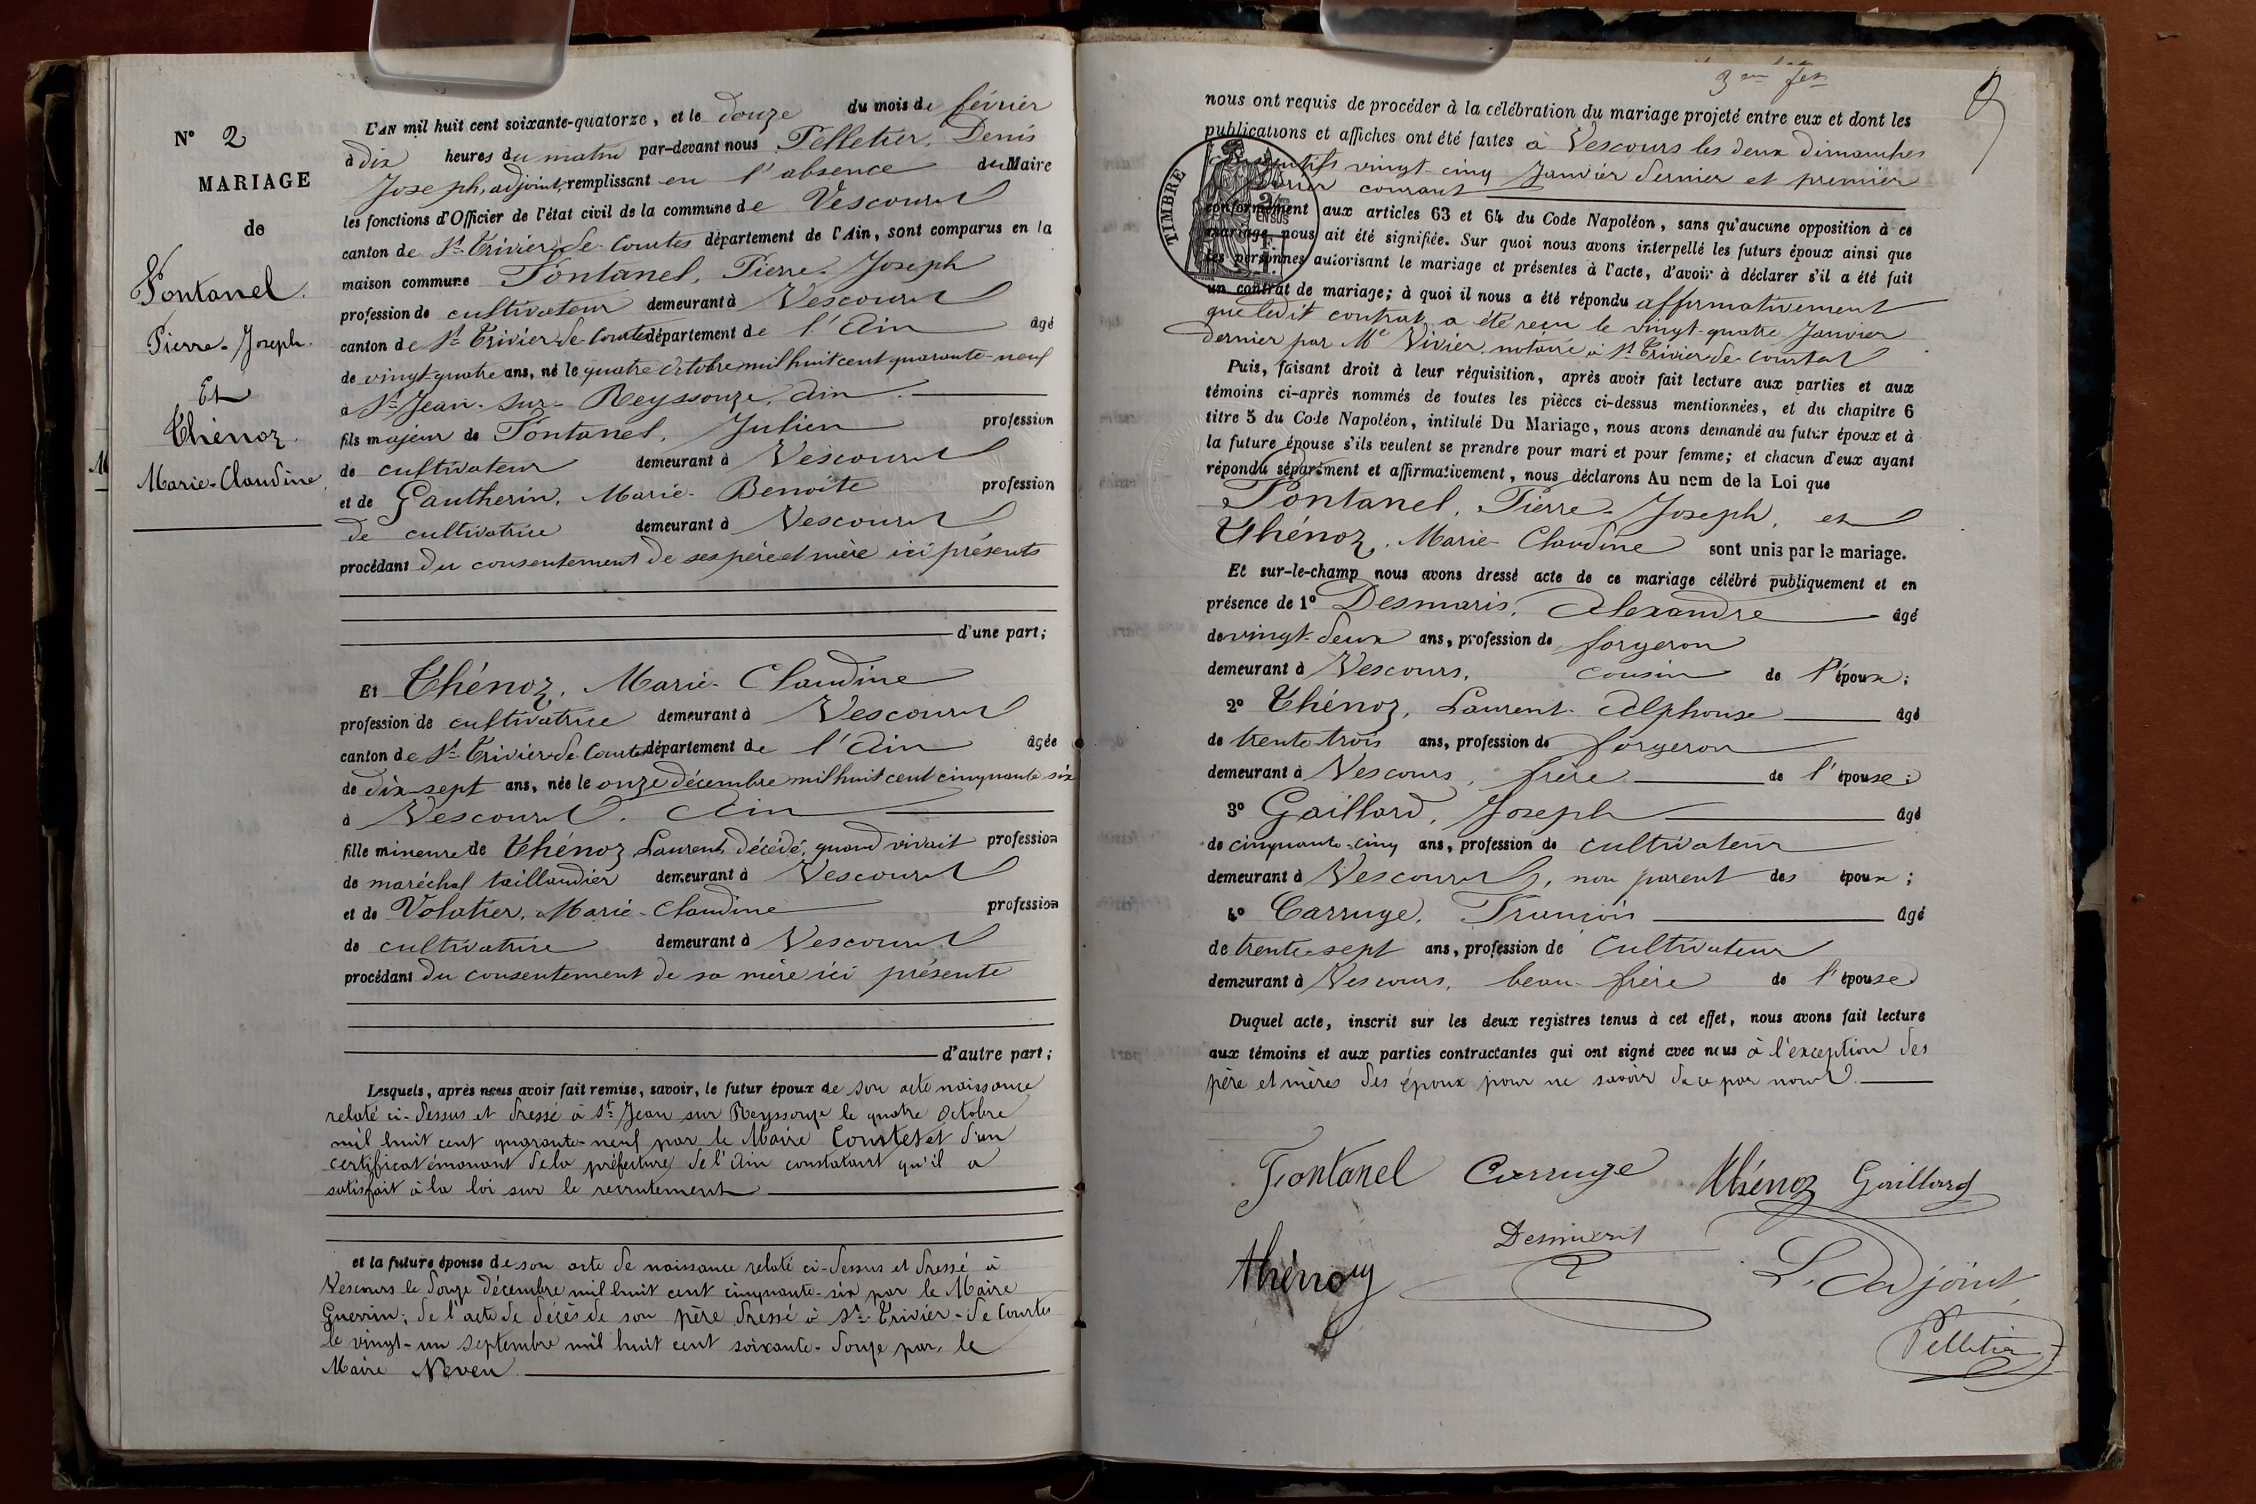 N° 2
MARIAGE
de
Fontanel.
Pierre-Joseph.
Et
Thénoz.
Marie-Claudine.
L'AN mil huit cent soixante-quatorze, et le douze du mois de février
à dix heures du matin par-devant nous Pelletier, Denis
Joseph, adjoint, remplissant en l'absence du Maire
les fonctions d'Officier de l'état civil de la commune de Vescours
canton de St Trivier-de-Courtes département de l'Ain, sont comparus en la
maison commune Fontanel, Pierre-Joseph
profession de cultivateur demeurant à Vescours
canton de St Trivier-de-Courtes département de l'Ain âgé
de vingt-quatre ans, né le quatre octobre mil huit cent quarante-neuf
à St Jean-sur-Reyssouze, Ain.
fils majeur de Fontanel, Julien profession
de cultivateur demeurant à Vescours
et de Gautherin, Marie-Benoite profession
de cultivatrice demeurant à Vescours
procédant du consentement de ses père et mère ici présents
d'une part;
Et Thénoz, Marie-Claudine
profession de cultivatrice demeurant à Vescours
canton de St Trivier-de-Courtes département de l'Ain âgée
de dix-sept ans, née le onze décembre mil huit cent cinquante-six
à Vescours. Ain
fille mineure de Thénoz, Laurent, décédé, quand vivait profession
de maréchal taillandier demeurant à Vescours
et de Volatier, Marie-Claudine profession
de cultivatrice demeurant à Vescours
procédant du consentement de sa mère ici présente
d'autre part;
Lesquels, après nous avoir fait remise, savoir, le futur époux de son acte naissance
relaté ci-dessus et dressé à St Jean sur Reyssouze le quatre octobre
mil huit cent quarante-neuf par le Maire Courtes et d'un
certificat émanant de la préfecture de l'Ain constatant qu'il a
satisfait à la loi sur le recrutement
et la future épouse de son acte de naissance relaté ci-dessus et dressé à
Vescours le douze décembre mil huit cent cinquante-six par le Maire
Guerin; de l'acte de décès de son père dressé à St Trivier-de-Courtes
le vingt-un septembre mil huit cent soixante-douze par le
Maire Neveu.
3me
9
nous ont requis de procéder à la célébration du mariage projeté entre eux et dont les
publications et affiches ont été faites à Vescours les deux dimanches
consécutifs vingt-cinq Janvier dernier et premier
février courant
conformément aux articles 63 et 64 du Code Napoléon, sans qu'aucune opposition à ce
mariage nous ait été signifiée. Sur quoi nous avons interpellé les futurs époux ainsi que
les personnes autorisant le mariage et présentes à l'acte, d'avoir à déclarer s'il a été fait
un contrat de mariage; à quoi il nous a été répondu affirmativement
que ledit contrat a été reçu le vingt-quatre Janvier
dernier par Me Vivier, notaire à St Trivier-de-Courtes
TIMBRE
Puis, faisant droit à leur réquisition, après avoir fait lecture aux parties et aux
témoins ci-après nommés de toutes les pièces ci-dessus mentionnées, et du chapitre 6
titre 5 du Code Napoléon, intitulé Du Mariage, nous avons demandé au futur époux et à
la future épouse s'ils veulent se prendre pour mari et pour femme; et chacun d'eux ayant
répondu séparément et affirmativement, nous déclarons Au nom de la Loi que
Fontanel, Pierre-Joseph, et
Thénoz, Marie-Claudine sont unis par le mariage.
Et sur-le-champ nous avons dressé acte de ce mariage célébré publiquement et en
présence de 1° Desmaris, Alexandre âgé
de vingt-deux ans, profession de forgeron
demeurant à Vescours, cousin de l'époux;
2° Thénoz, Laurent-Alphonse âgé
de trente-trois ans, profession de forgeron
demeurant à Vescours, frère de l'épouse;
3° Gaillard, Joseph âgé
de cinquante-cinq ans, profession de cultivateur
demeurant à Vescours, non parent des époux;
4° Carruge, François âgé
de trente-sept ans, profession de cultivateur
demeurant à Vescours, beau-frère de l'épouse
Duquel acte, inscrit sur les deux registres tenus à cet effet, nous avons fait lecture
aux témoins et aux parties contractantes qui ont signé avec nous à l'exception des
père et mères des époux pour ne savoir de ce par nous
Fontanel Carruge Thénoz Gaillard
Thénoz
L'adjoint,
Pelletier